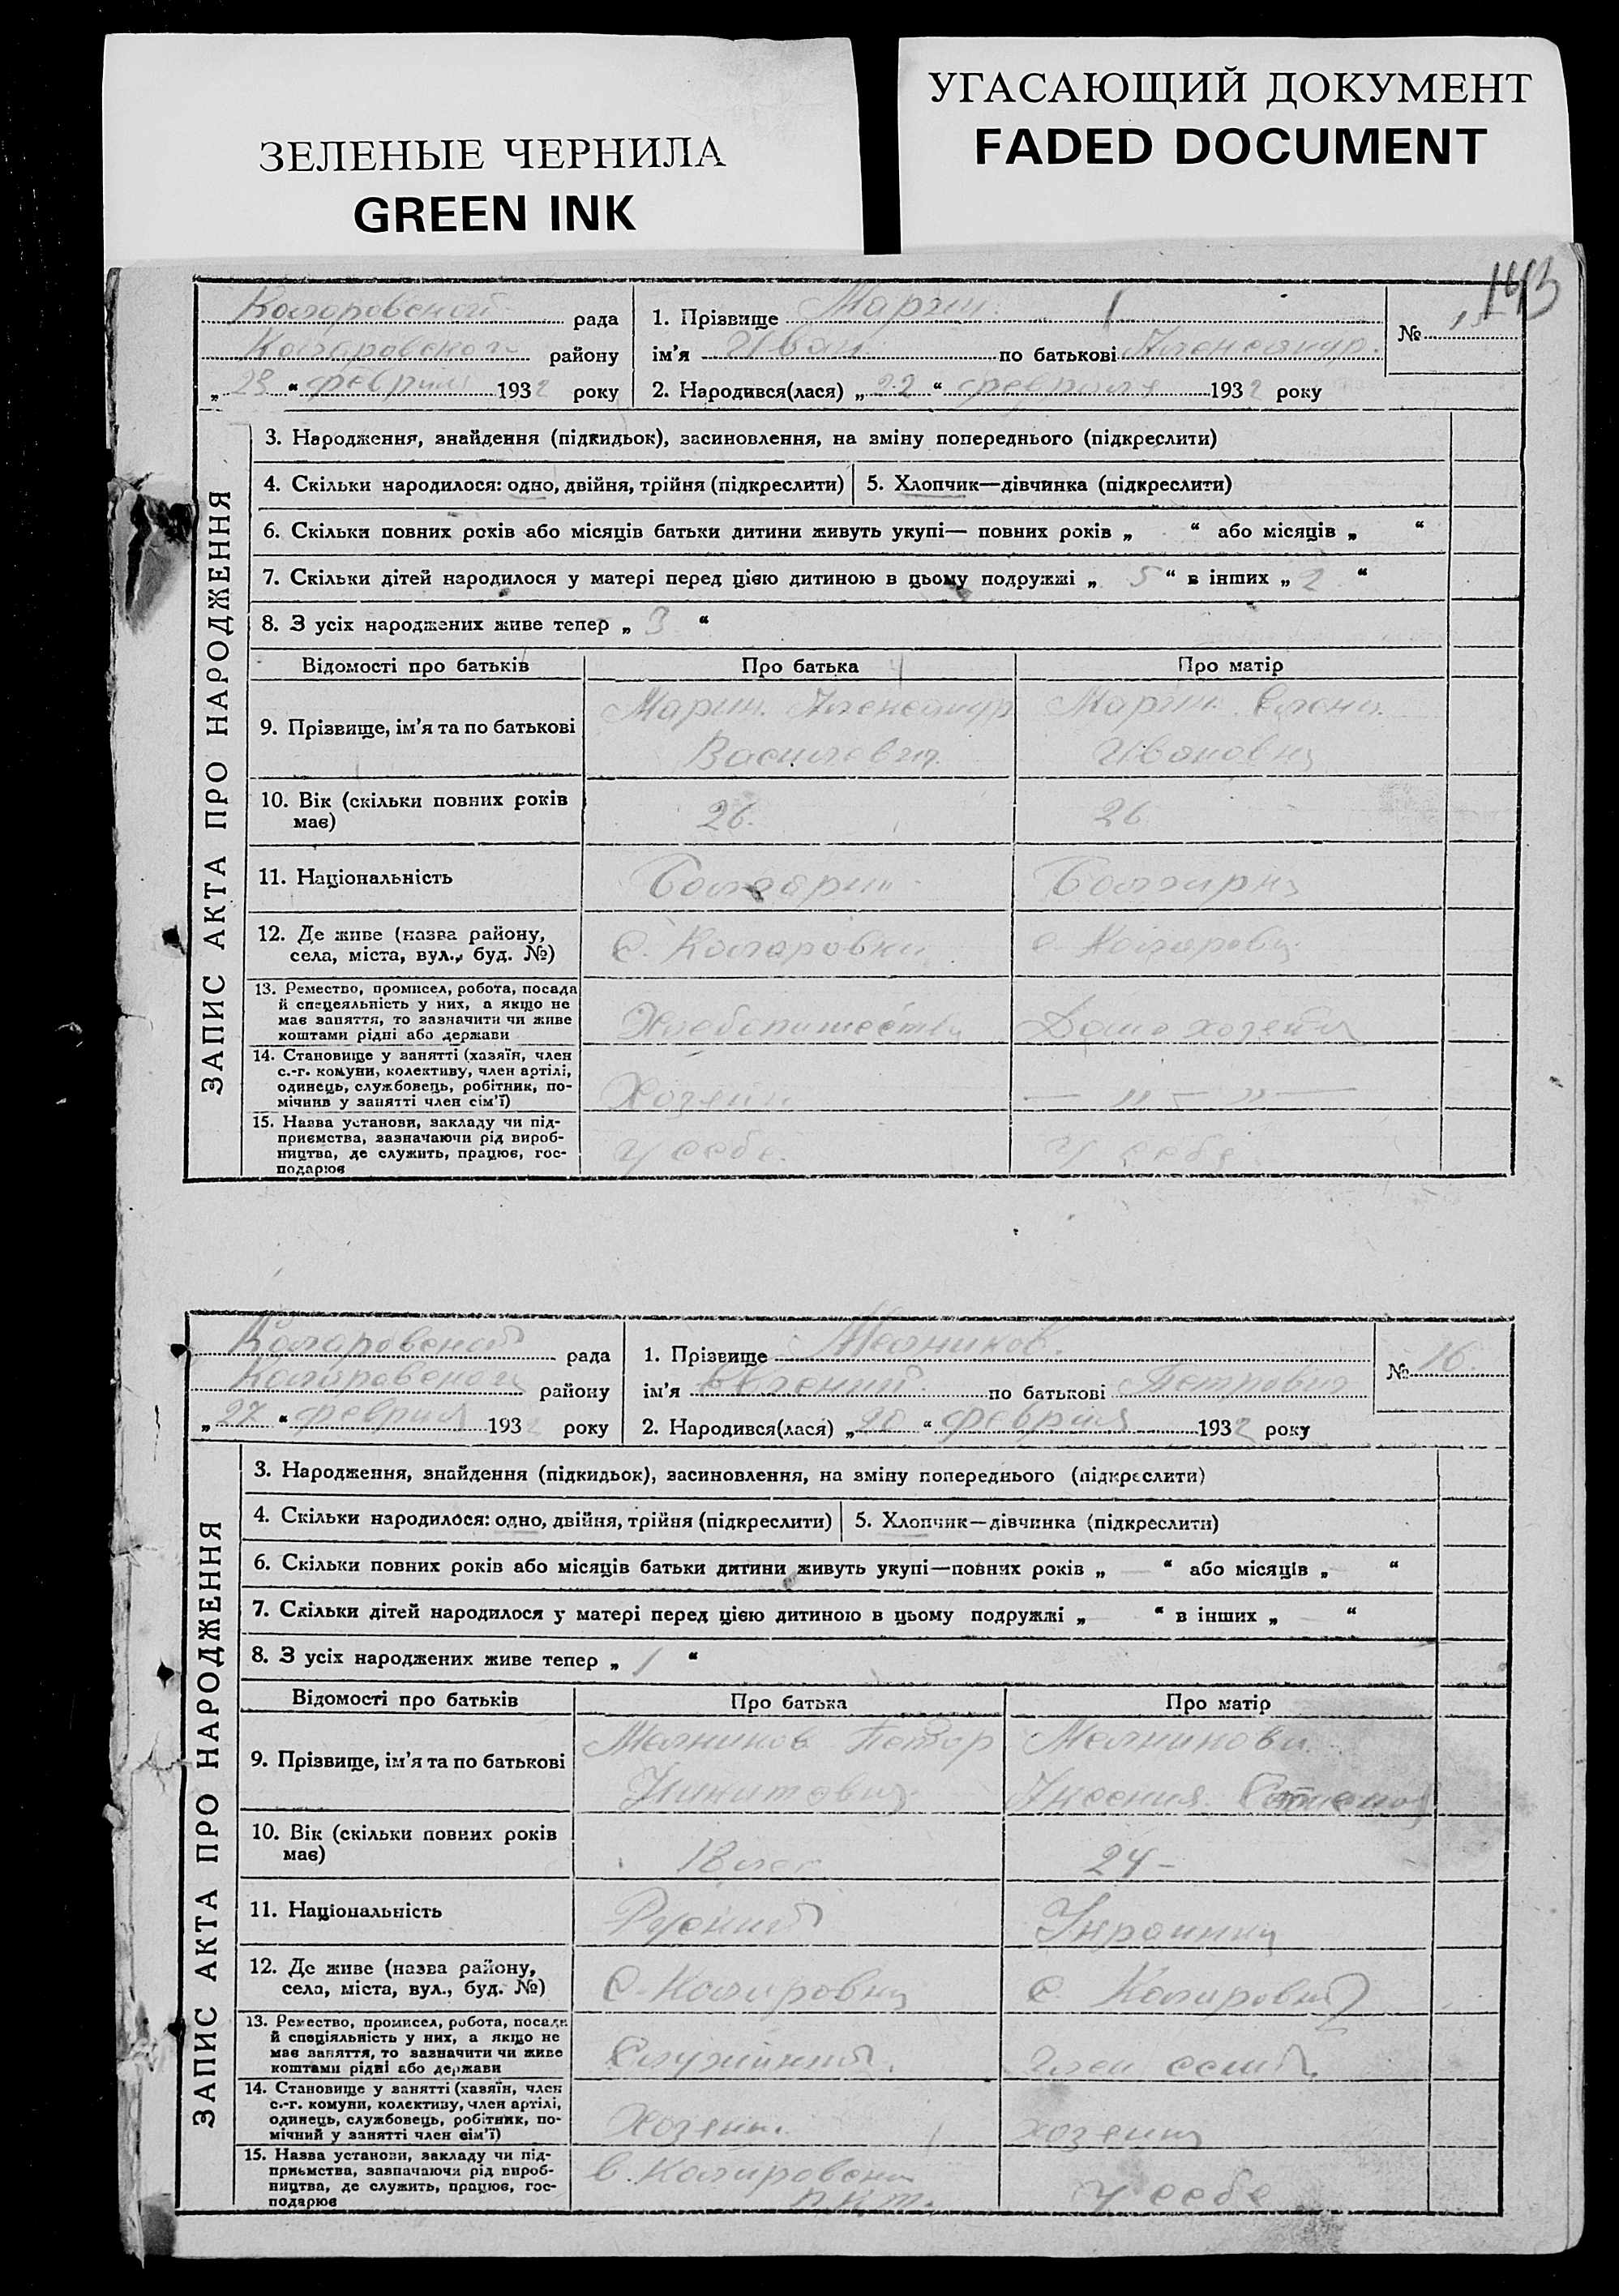 ЗЕЛЕНЫЕ ЧЕРНИЛА
GREEN INK
УГАСАЮЩИЙ ДОКУМЕНТ
FADED DOCUMENT
143
Коларовской рада
1. Прізвище Марин
№ 15
Коларовского району
ім'я Иван по батькові Александр.
„23“ февраля 1932 року
2. Народився(лася) „22“ февраля 1932 року
ЗАПИС АКТА ПРО НАРОДЖЕННЯ
3. Народження, знайдення (підкидьок), засиновлення, на зміну попереднього (підкреслити)
4. Скільки народилося: одно, двійня, трійня (підкреслити)
5. Хлопчик—дівчинка (підкреслити)
6. Скільки повних років або місяців батьки дитини живуть укупі— повних років „ “ або місяців „ “
7. Скільки дітей народилося у матері перед цією дитиною в цьому подружжі „ 5 “ в інших „ 2 “
8. З усіх народжених живе тепер „ 3 “
Відомості про батьків
Про батька
Про матір
9. Прізвище, ім'я та по батькові
Марин Александр
Васильевич
Марин Елена
Ивановна
10. Вік (скільки повних років
має)
26
26
11. Національність
Болгарин
Болгарка
12. Де живе (назва району,
села, міста, вул., буд. №)
С. Коларовка
с. Коларовка
13. Ремество, промисел, робота, посада
й спецеяльність у них, а якщо не
має заняття, то зазначити чи живе
коштами рідні або держави
14. Становище у занятті (хазяїн, член
с.-г. комуни, колективу, член артілі,
одинець, службовець, робітник, по-
мічнив у занятті член сім'ї)
Хозяин
— „ — „ —
15. Назва установи, закладу чи під-
приємства, зазначаючи рід вироб-
ництва, де служить, працює, гос-
подарює
У себе.
У себе
Коларовской рада
1. Прізвище Мельников.
№ 16.
Коларовского району
ім'я Евгений по батькові Петрович
„27“ февраля 1932 року
2. Народився(лася) „20“ февраля 1932 року
ЗАПИС АКТА ПРО НАРОДЖЕННЯ
3. Народження, знайдення (підкидьок), засиновлення, на зміну попереднього (підкреслити)
4. Скільки народилося: одно, двійня, трійня (підкреслити)
5. Хлопчик—дівчинка (підкреслити)
6. Скільки повних років або місяців батьки дитини живуть укупі—повних років „ — “ або місяців „ — “
7. Скільки дітей народилося у матері перед цією дитиною в цьому подружжі „ “ в інших „ “
8. З усіх народжених живе тепер „ 1 “
Відомості про батьків
Про батька
Про матір
9. Прізвище, ім'я та по батькові
Мельников Петр
Никитович
Мельникова
Ксения
10. Вік (скільки повних років
має)
18 лет
24 —
11. Національність
Руский
Украинка
12. Де живе (назва району,
села, міста, вул., буд. №)
С. Коларовка
С. Коларовка
13. Ремество, промисел, робота, посада
й спеціяльність у них, а якщо не
має заняття, то зазначити чи живе
коштами рідні або держави
член семьи
14. Становище у занятті (хазяїн, член
с.-г. комуни, колективу, член артілі,
одинець, службовець, робітник, по-
мічний у занятті член сім'ї)
хозяин.
хозяйка
15. Назва установи, закладу чи під-
приємства, зазначаючи рід вироб-
ництва, де служить, працює, гос-
подарює
У себе